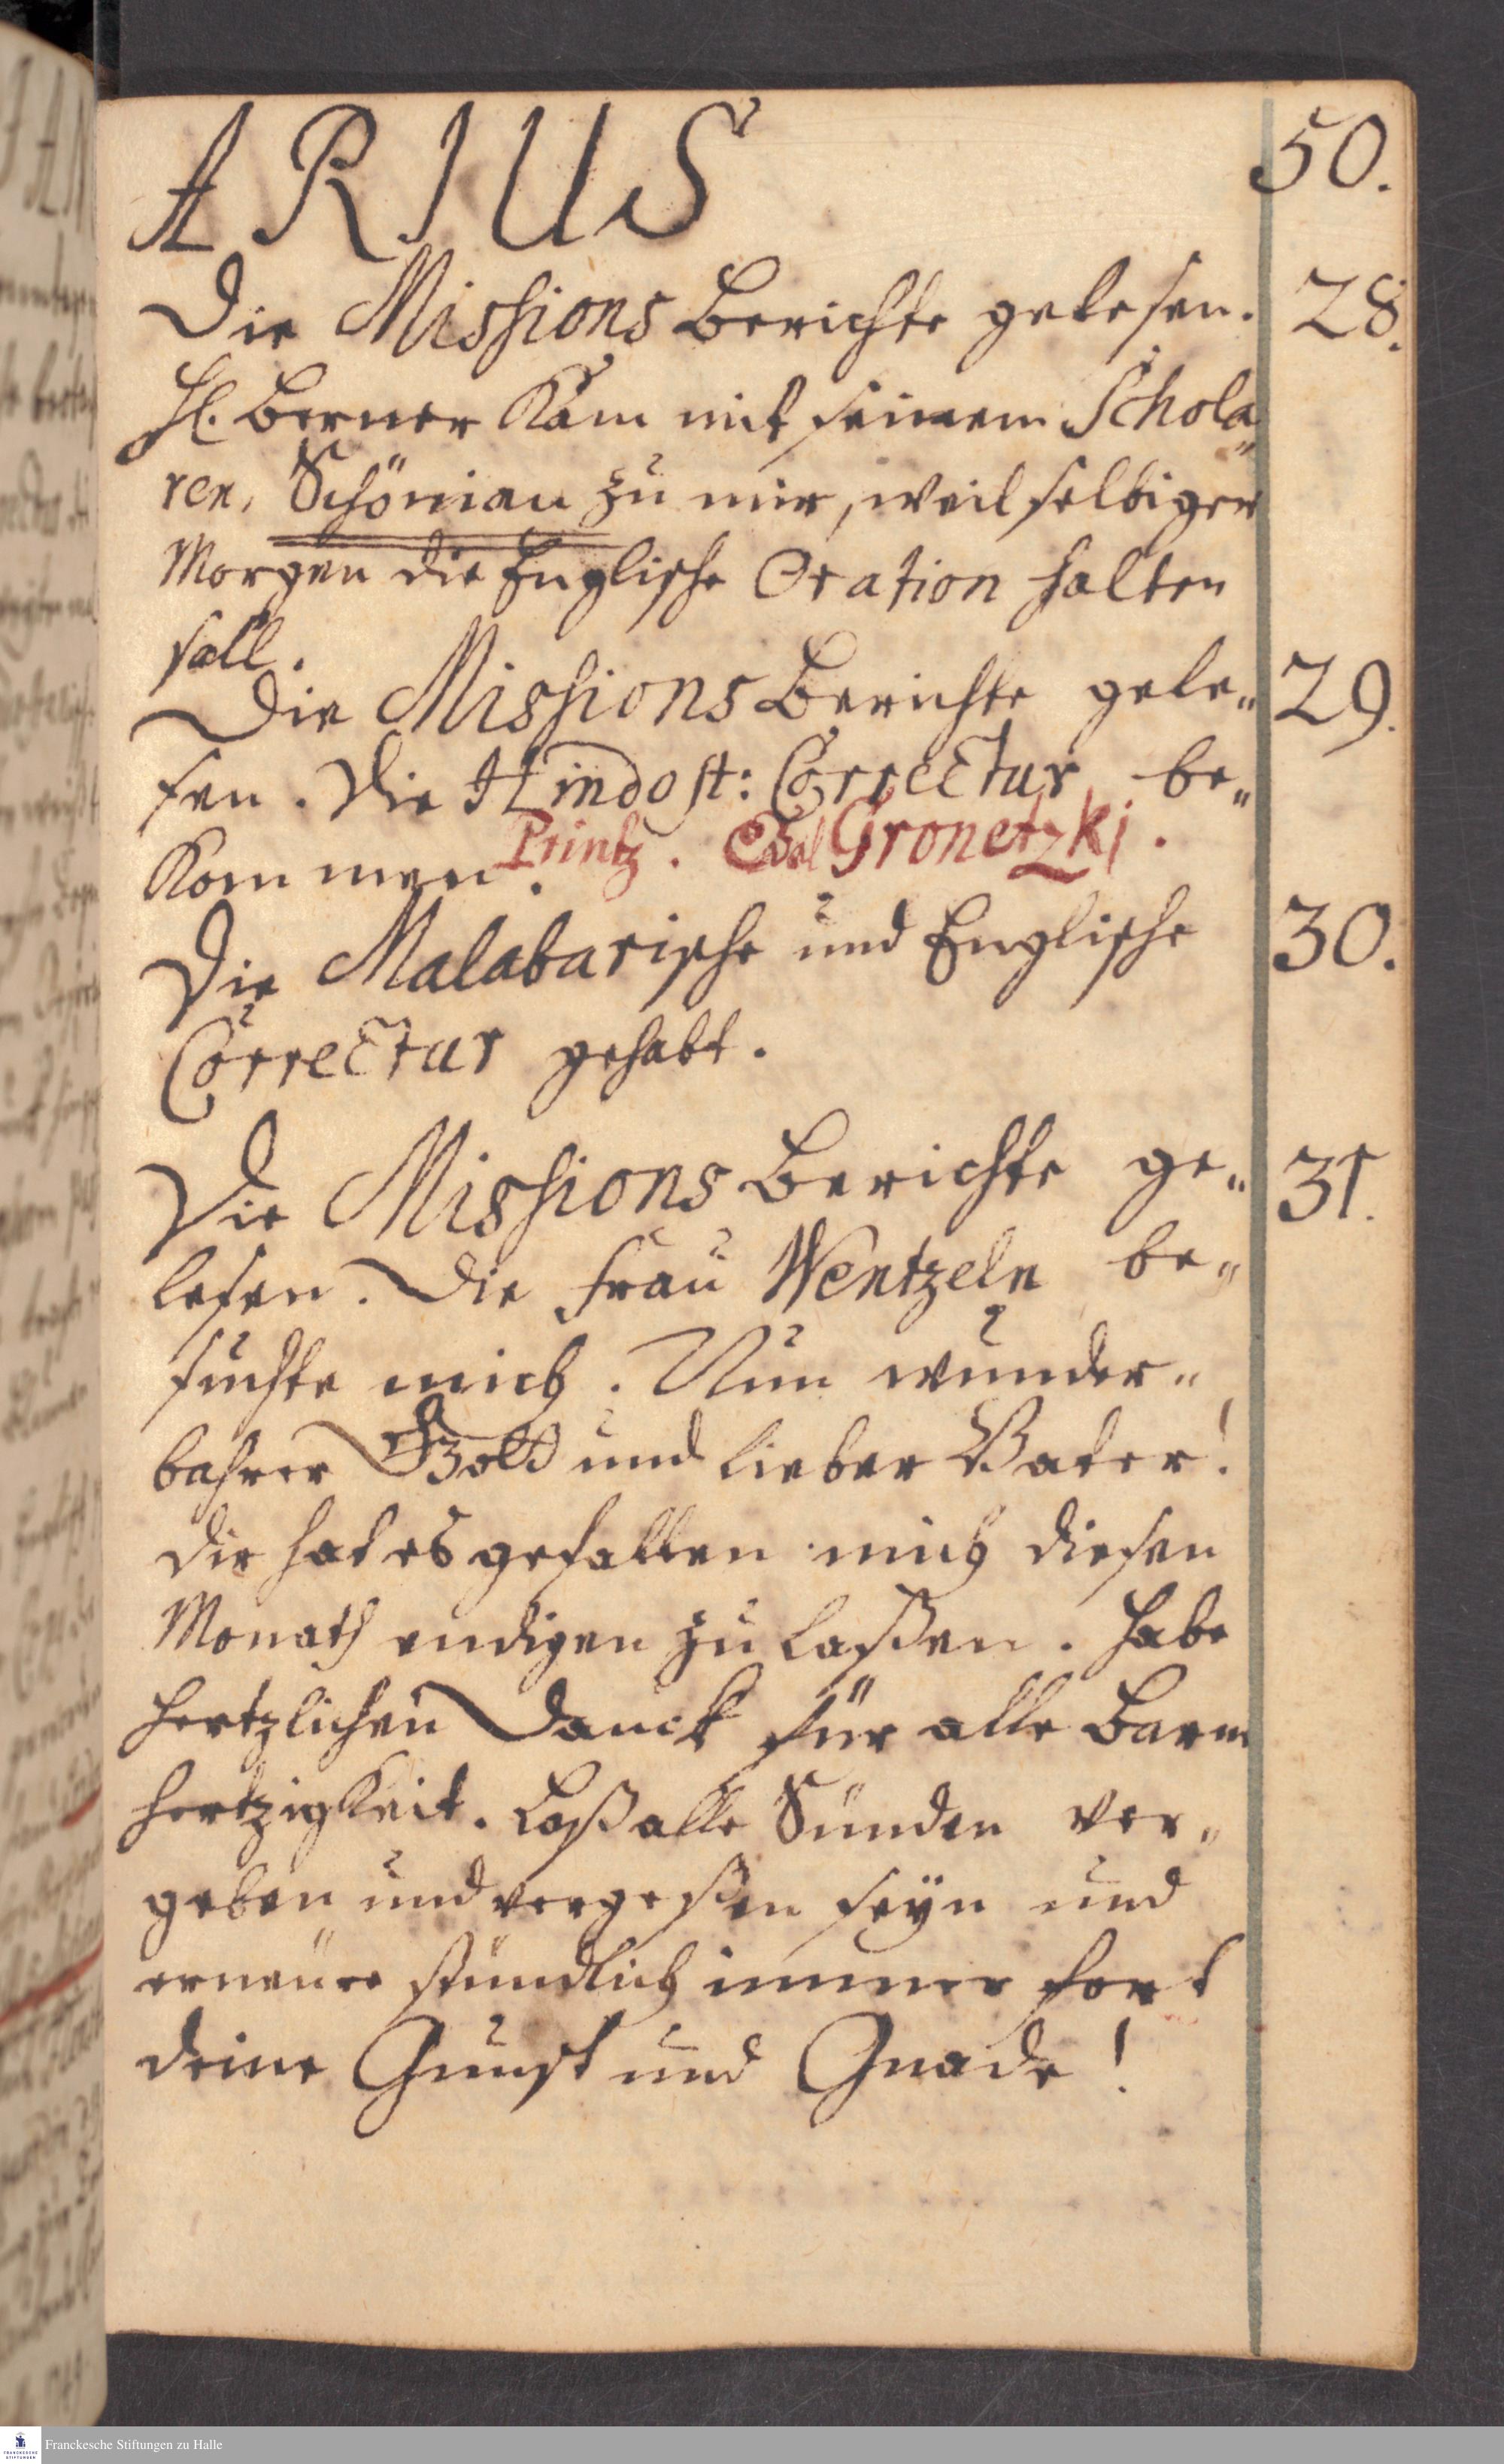 ARIUS
50.
Die Missions Berichte gelesen.
28.
H. Berner kam mit seinem Schola„
ren, Schönian zu mir, weil selbiger
Morgen die Englische Oration halten
soll.
Die Missions Berichte gele„
29.
sen. Die Hindost: Correctur be„
Printz. Gronetzki.
kommen.
Die Malabarische und Englische
30.
Correctur gehabt.
Die Missions Berichte ge„
31.
lesen. Die Frau Wentzeln be„
suchte mich. Nun wunder„
bahrer Gott und lieber Vater!
dir hat es gefallen mich diesen
Monath endigen zu laßen. Habe
hertzlichen Danck für alle Barm
hertzigkeit. Laß alle Sünden ver„
geben und vergeßen seyn und
erneure stündlich immer fort
deine Gunst und Gnade!
FRANCKESCHE
STIFTUNGEN
Franckesche Stiftungen zu Halle